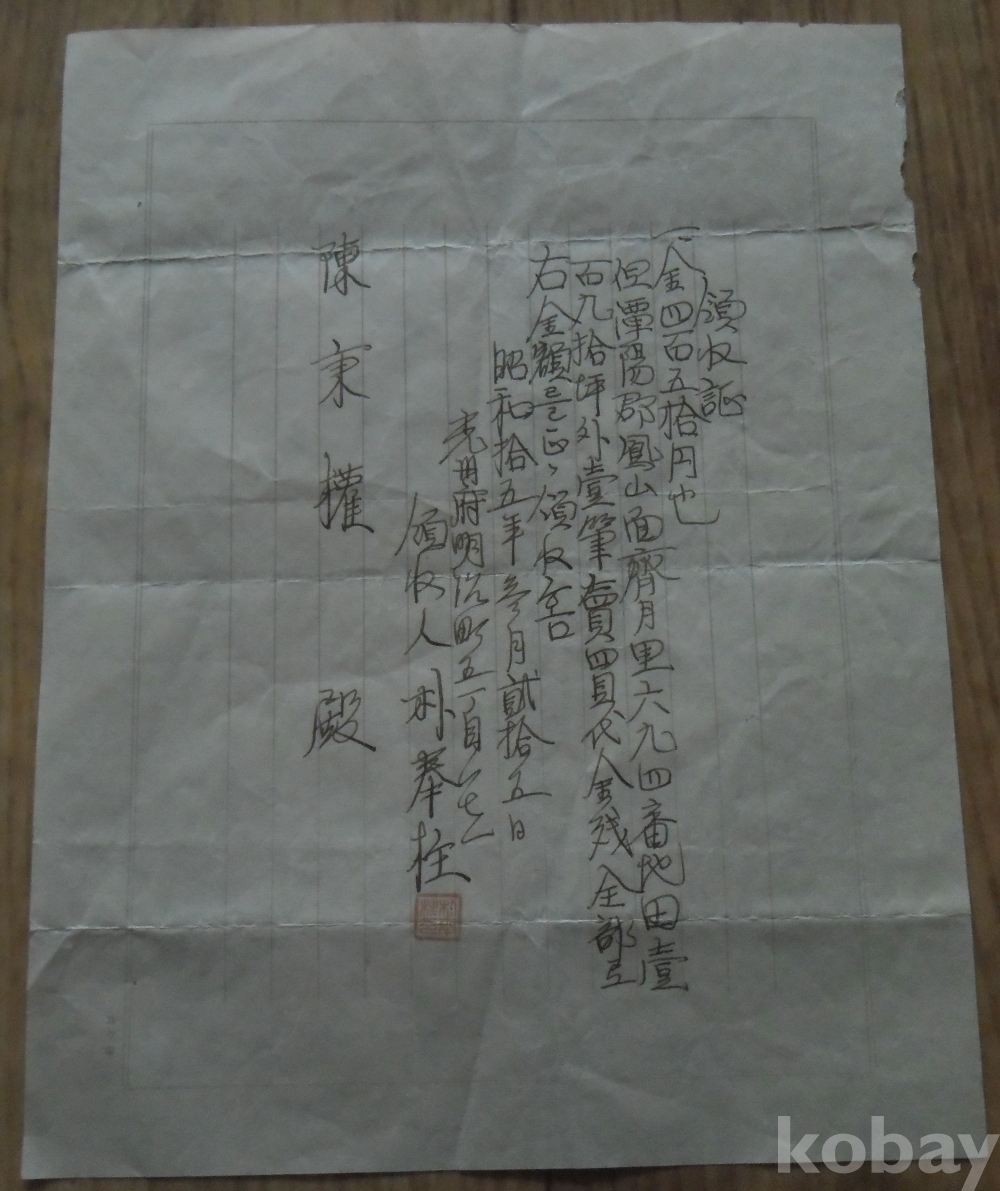 領収証
一金四百五拾円也
但潭陽郡鳳山面齊月里六九四番地田壹
百九拾坪外壹筆賣買代金残全部로
右金額를正히領收홈
昭和拾五年参月貳拾五日
光州府明治町五丁目六七一
領收人 朴奉柱
陳秉權 殿
kobay